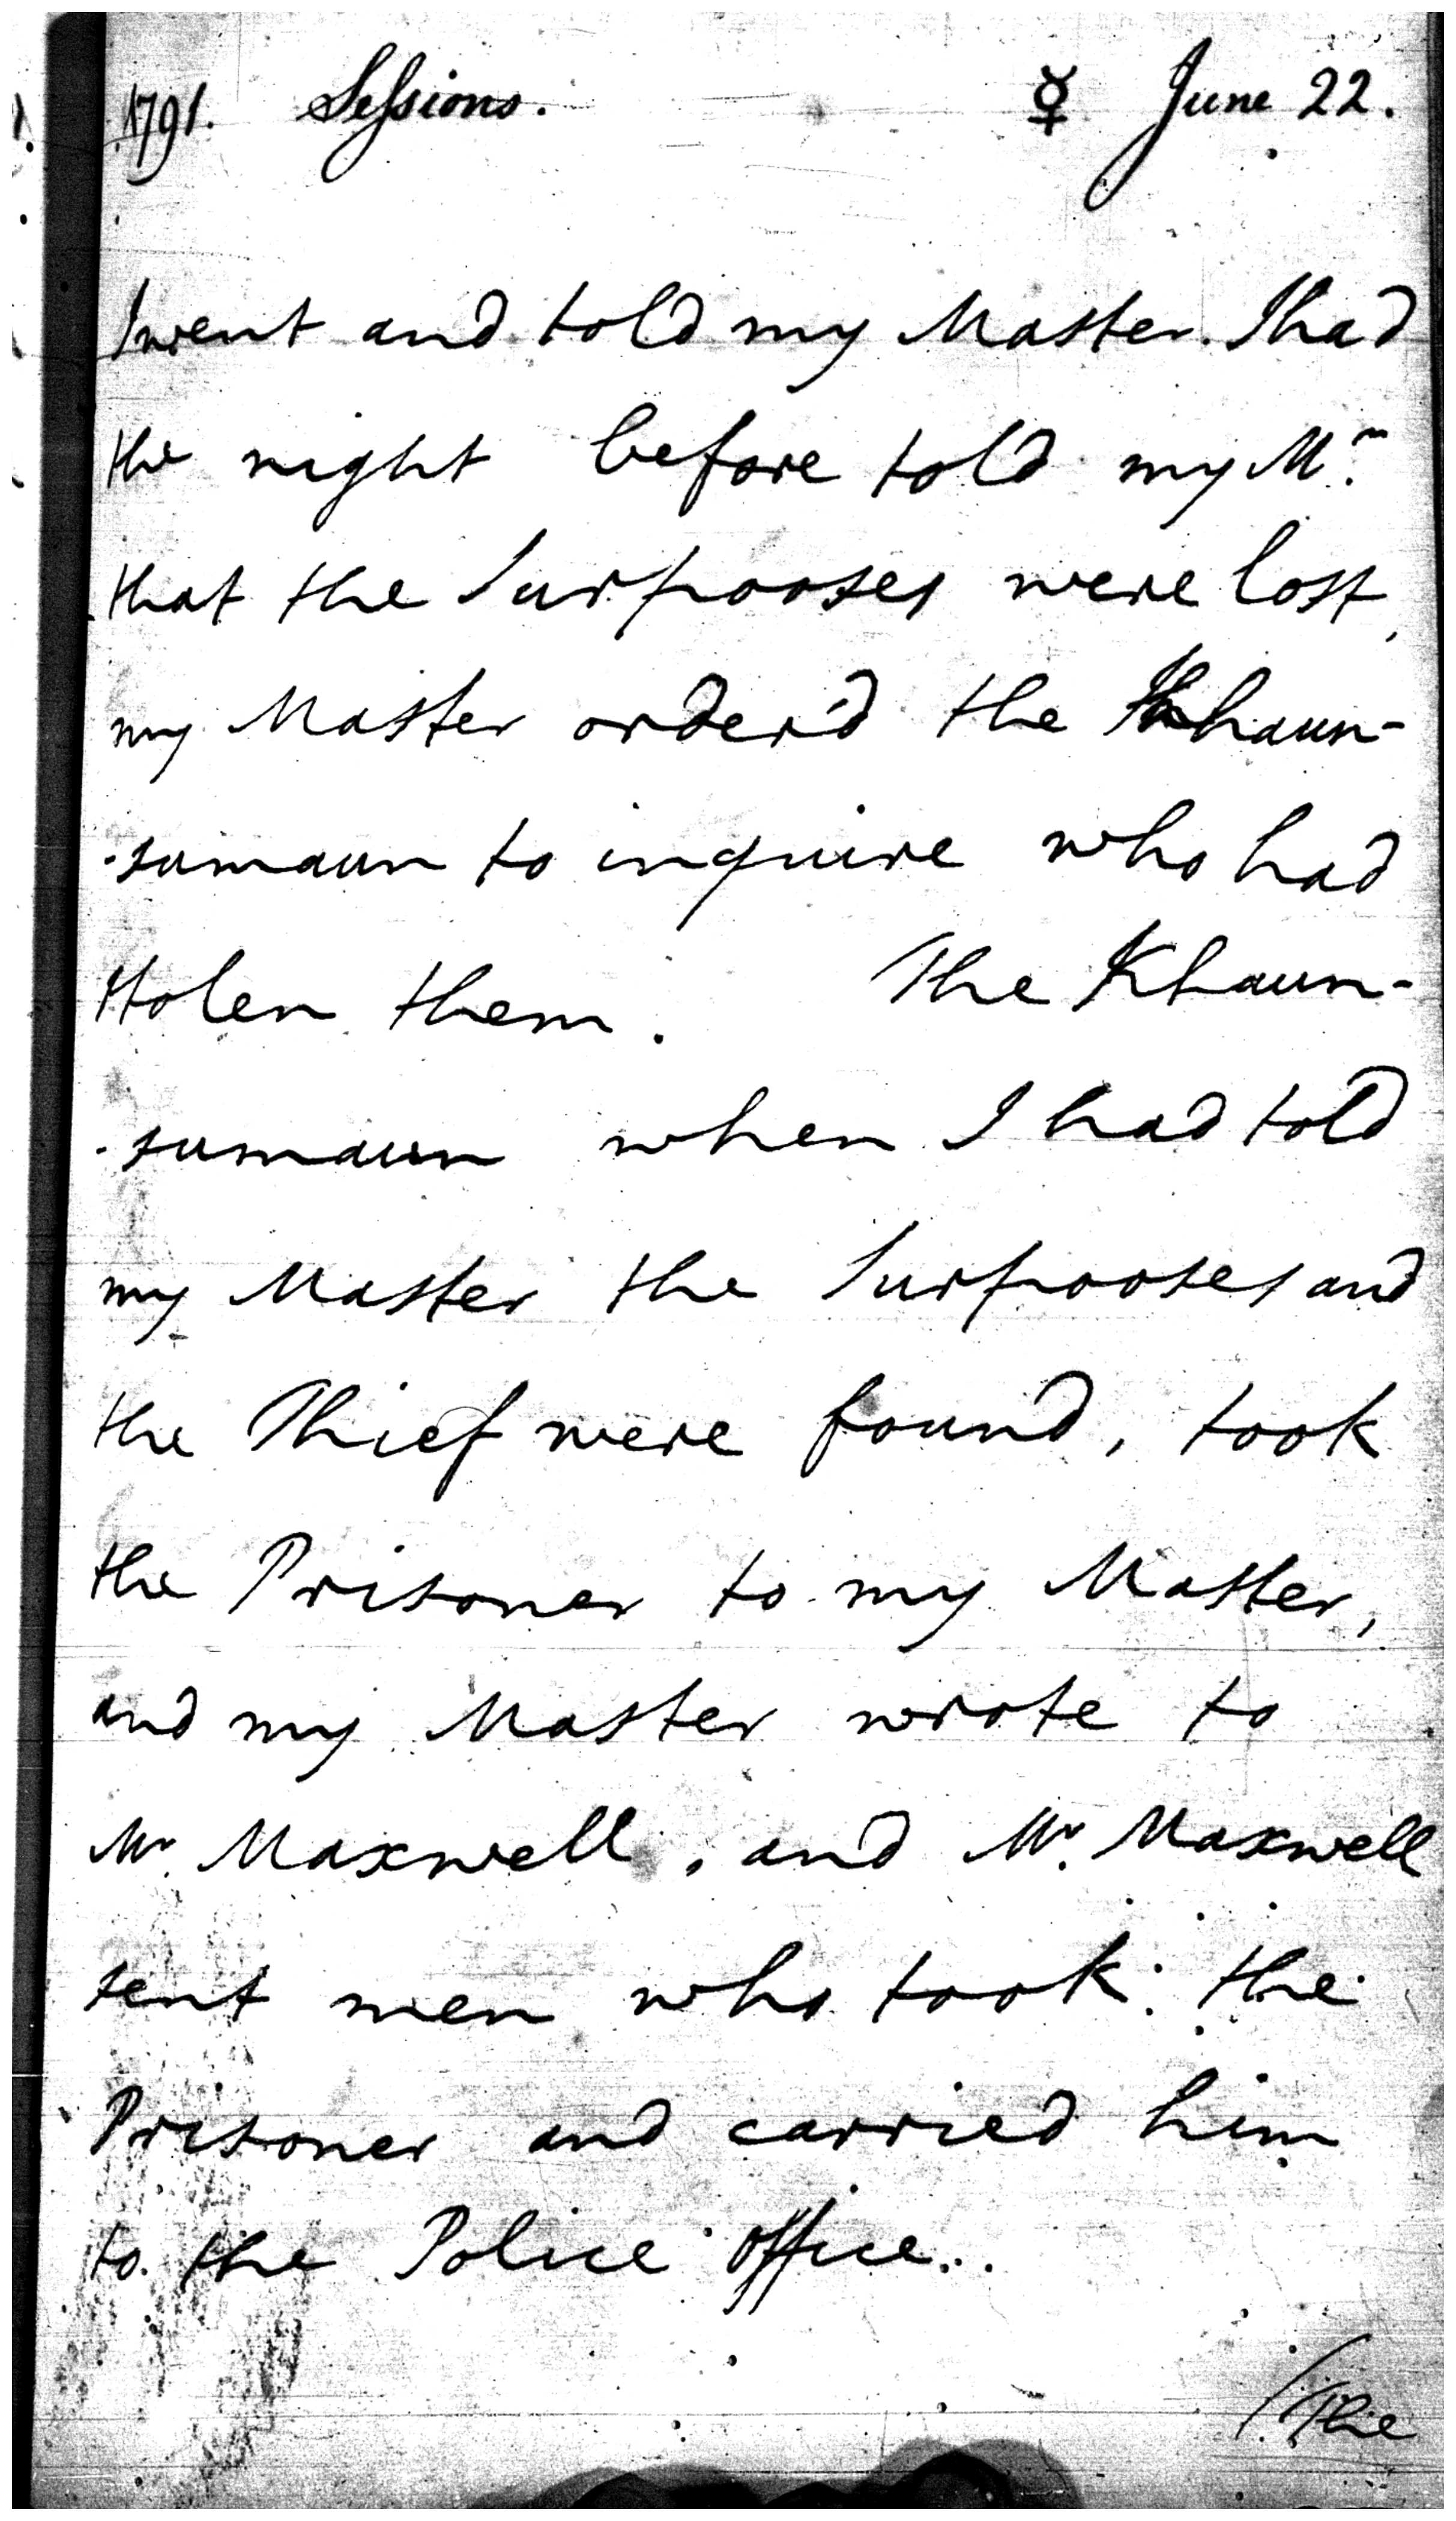 1791. Sessions. ☿ June 22.
I went and told my Master. I had
the night before told my Mr.
that the Surpooses were lost,
my Master order'd the Khaun-
-sumaun to inquire who had
stolen them. The Khaun-
-sumaun when I had told
my Master the Surpooses and
the Thief were found, took
the Prisoner to my Master,
and my Master wrote to
Mr. Maxwell, and Mr. Maxwell
sent men who took the
Prisoner and carried him
to the Police office.
(The